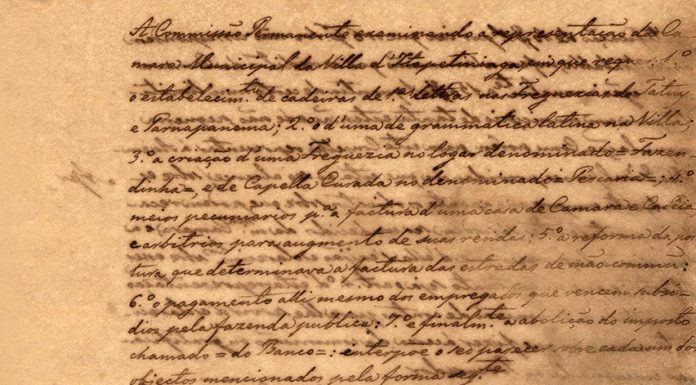 A Commissão Permanente examinando a representação da Ca-
mara Municipal da Villa d'Itapetininga em que requer: 1.º
o estabelecim.to de cadeiras de 1.as letras nas Freguezias do Tatuy
e Parnapanema; 2.º o d'uma de grammatica latina na Villa;
3.º a criação d'uma Freguezia no logar denominado = Fazen
dinha =, e de Capella Curada no denominado = =; 4.º
meios pecuniarios p.ª a factura d'uma casa de Camara e Cadêa
e arbitrios para augmento de suas rendas; 5.º a reforma da pos
tura, que determinava a factura das estradas de mão commum:
6.º o pagamento alli mesmo dos empregados que vencem subsi-
dios pela fazenda publica: 7.º e finalm.te a abolição do imposto
chamado = do Banco =: interpõe o seo parecer sobre cada um dos
objectos mencionados pela forma seg.te